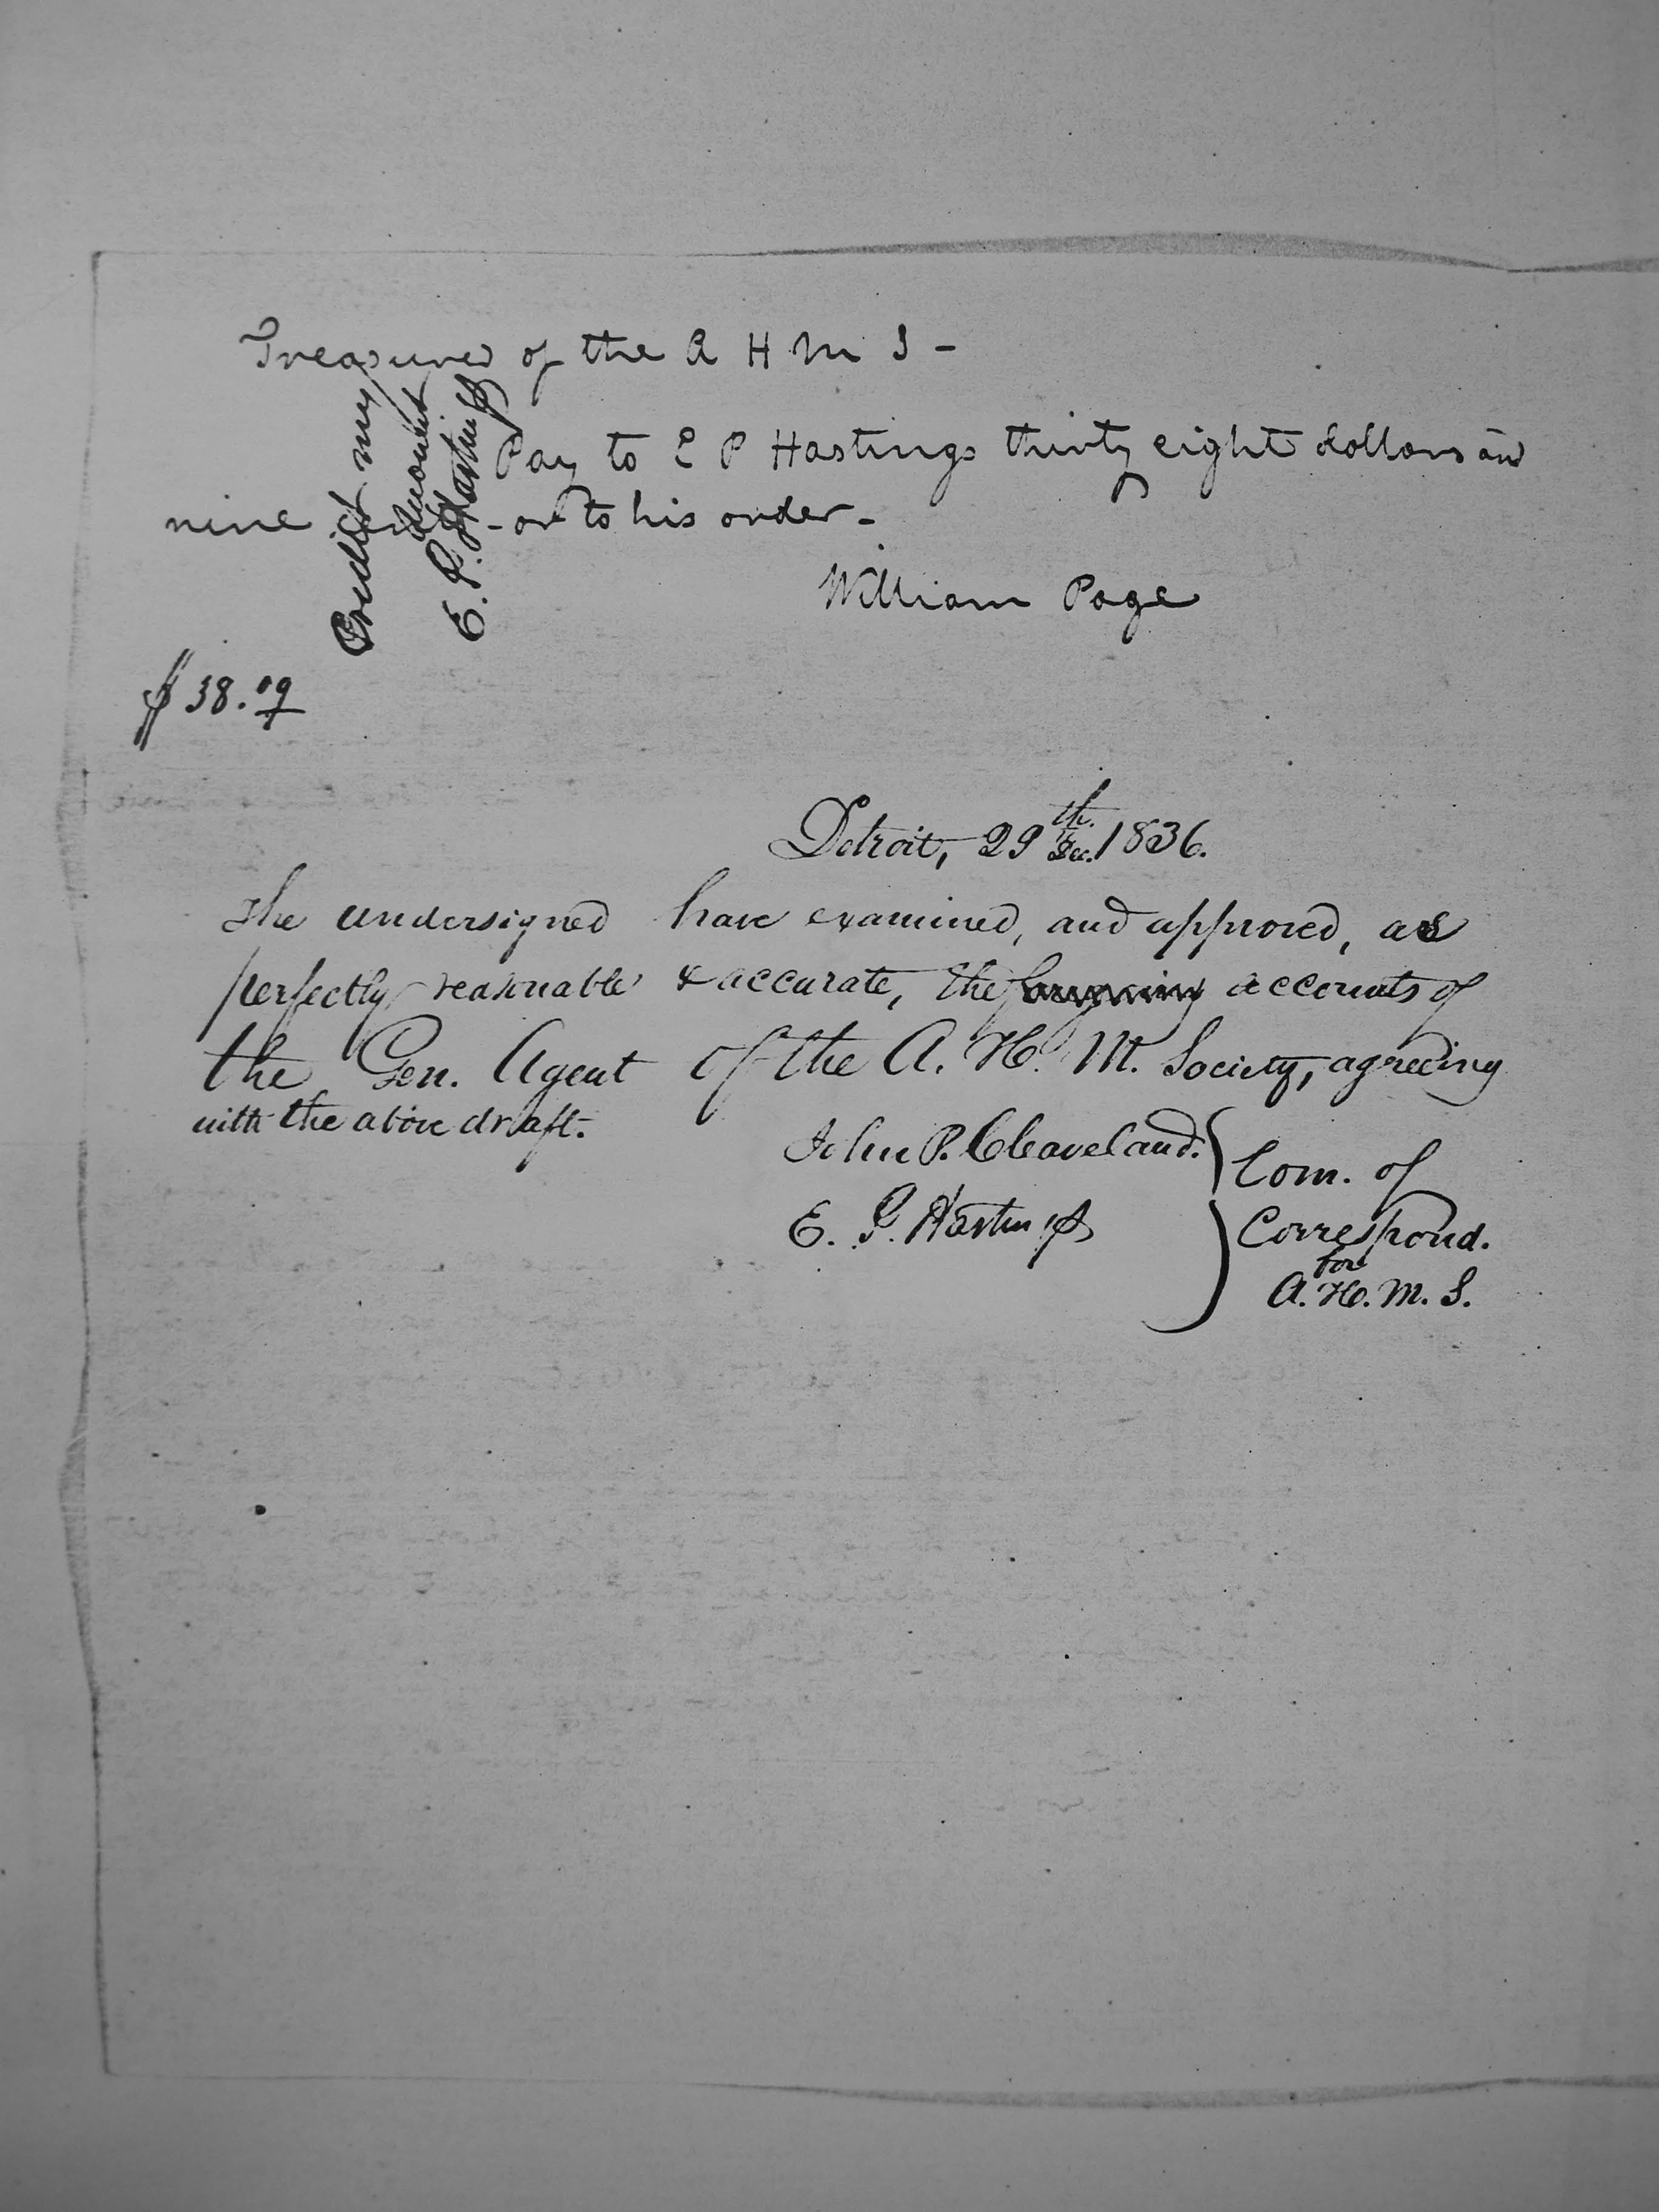 Treasurer of the A H M S -
Pay to E P Hastings thirty eight dollars and
nine cents - or to his order -
William Page
Credit my
account
E. P. Hastings
$ 38.09
Detroit, 29th. Dec. 1836.
The undersigned have examined, and approved, as
perfectly reasonable & accurate, the accounts of
the Gen. Agent of the A. H. M. Society, agreeing
with the above draft.
John P. Cleaveland.
E. P. Hastings
Com. of
Correspond.
for
A. H. M. S.